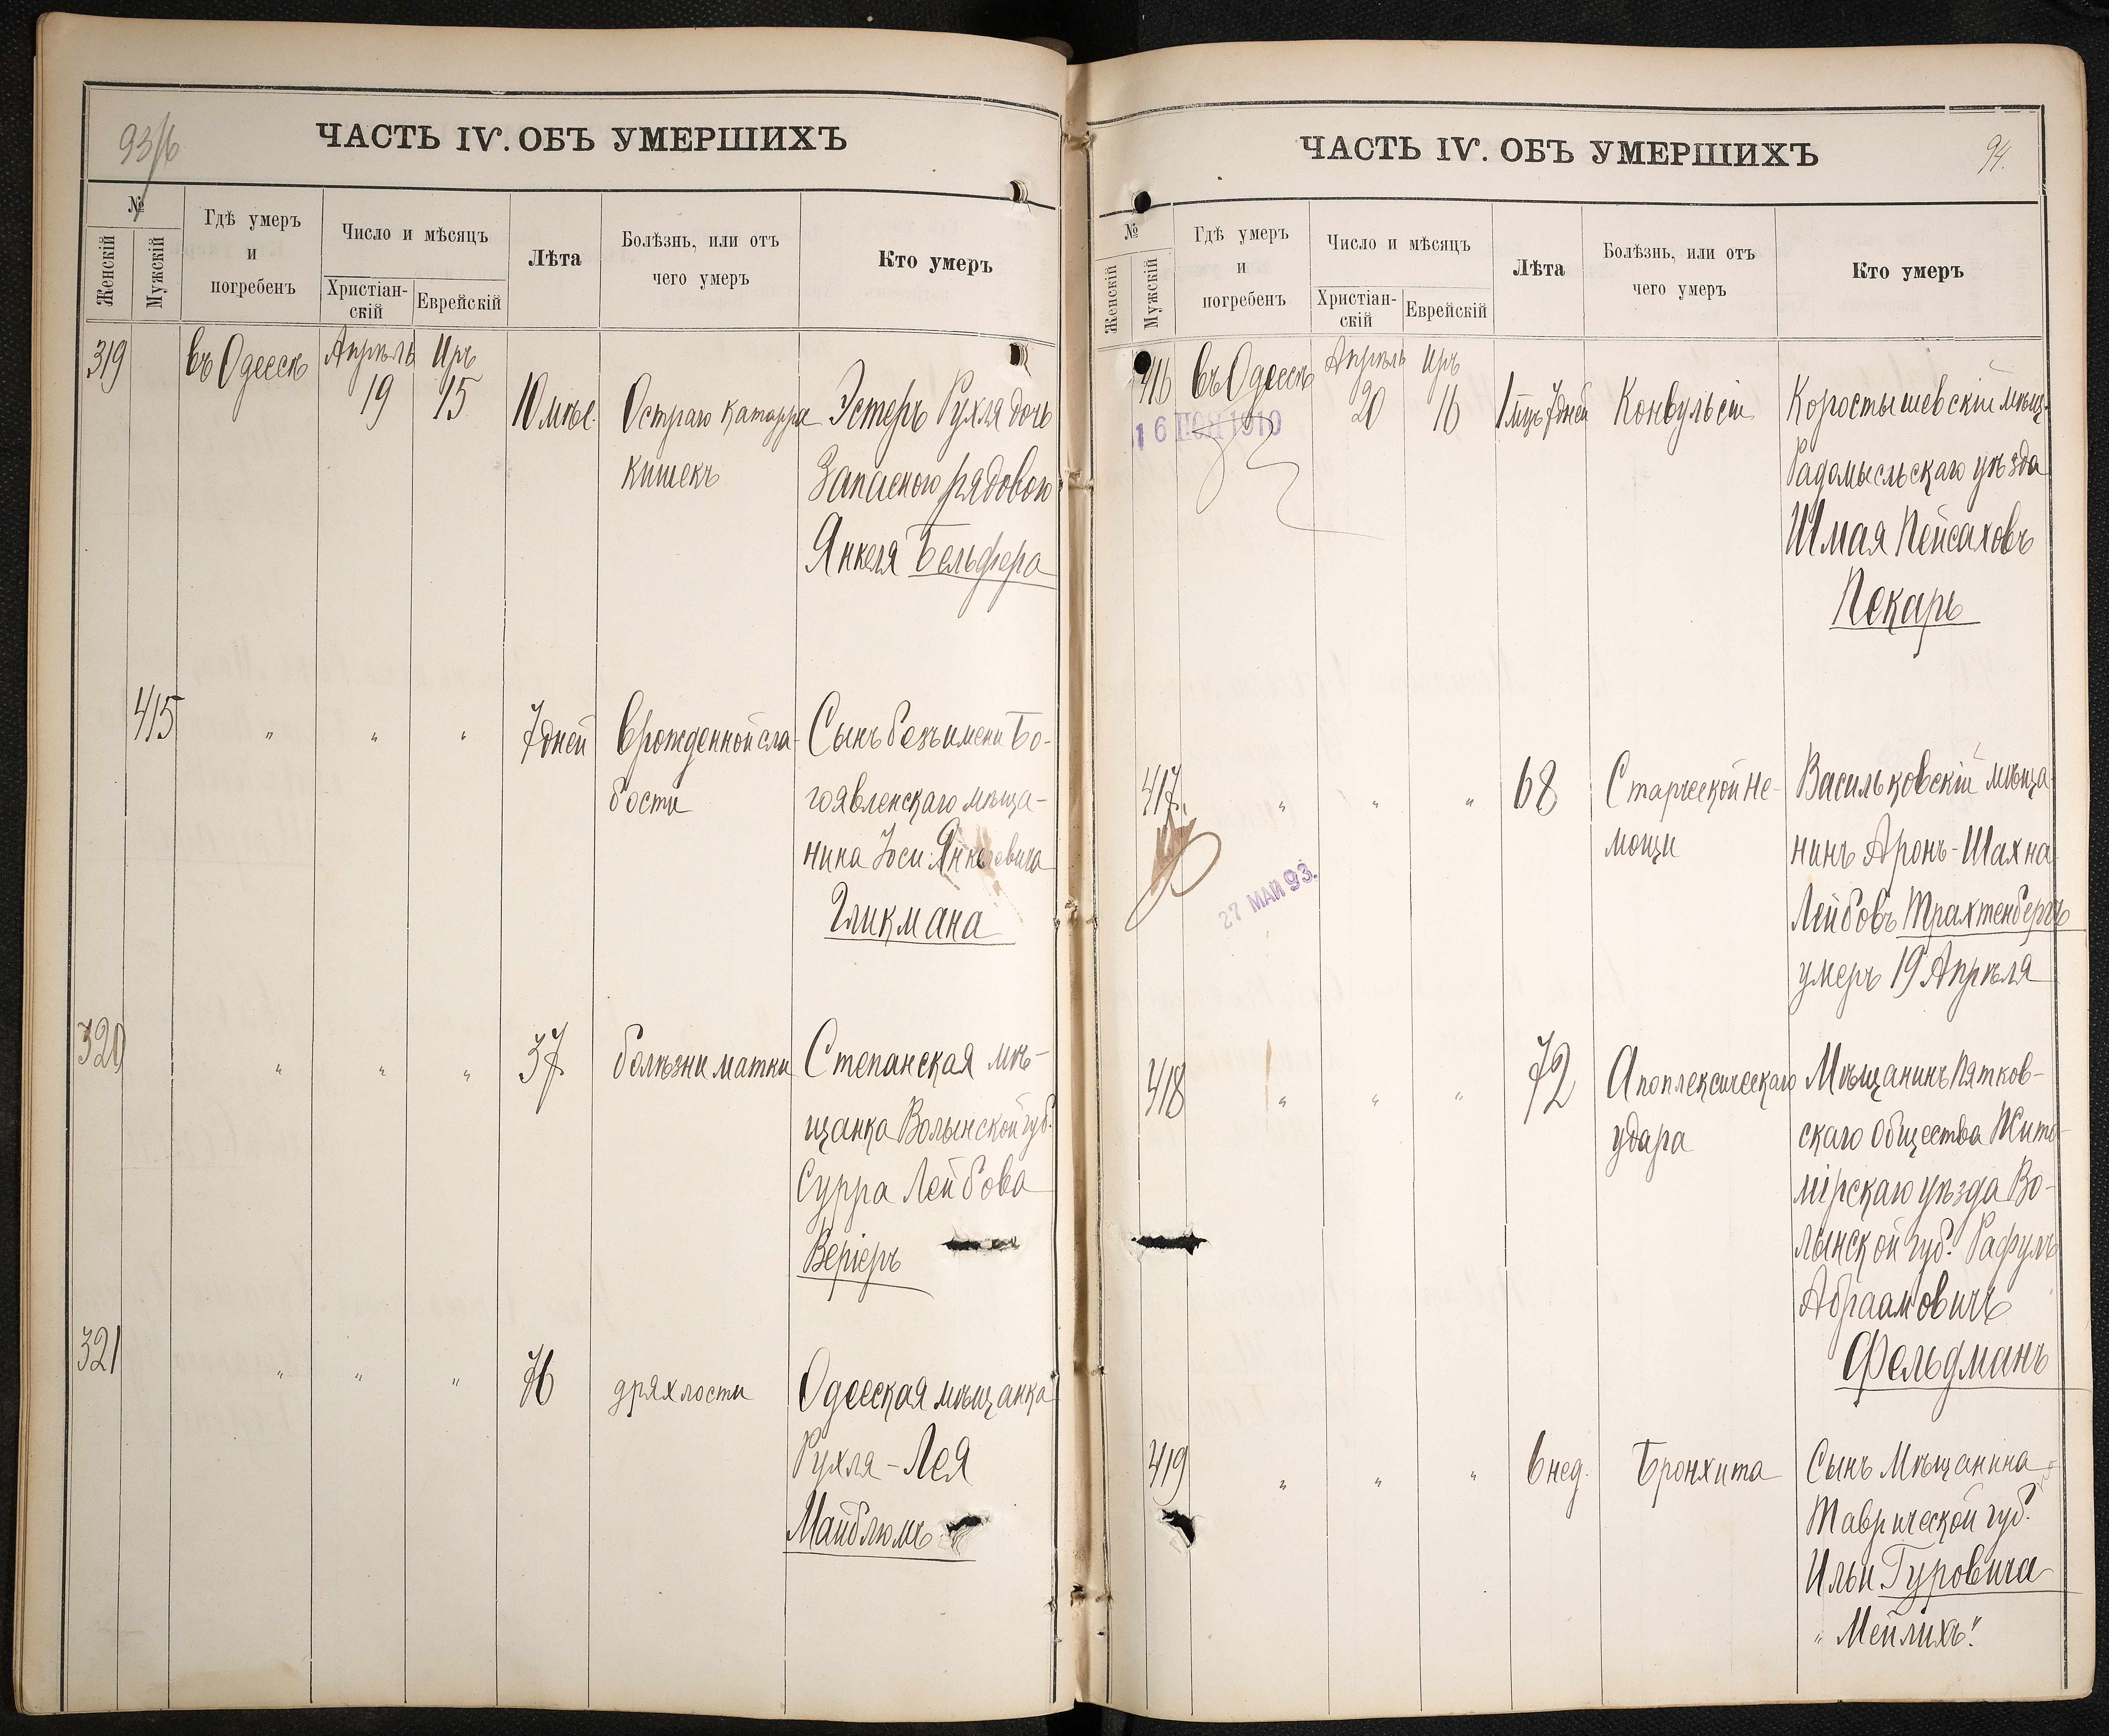 93/6
ЧАСТЬ IV. ОБЪ УМЕРШИХЪ
№
Женскій
Мужскій
Гдѣ умеръ
и
погребенъ
Число и мѣсяцъ
Христіан-
скій
Еврейскій
Лѣта
Болѣзнь, или отъ
чего умеръ
Кто умеръ
319
въ Одессѣ
Апрѣль
19
Иръ
15
10 мѣс.
Остраго катарра
кишекъ
Эстеръ Рухля дочь
Запасного рядового
Янкеля Бельфера
415
"
"
"
7 дней
Врожденной сла-
бости
Сынъ безъ имени Бо-
гоявленскаго мѣща-
нина Іоси Янкелевича
Гликмана
320
"
"
"
37
болѣзни матки
Степанская мѣ-
щанка Волынской губ.
Сурра Лейбова
Веріеръ
321
"
"
"
76
дряхлости
Одесская мѣщанка
Рухля-Лея
Майблюмъ
ЧАСТЬ IV. ОБЪ УМЕРШИХЪ
94.
№
Женскій
Мужскій
Гдѣ умеръ
и
погребенъ
Число и мѣсяцъ
Христіан-
скій
Еврейскій
Лѣта
Болѣзнь, или отъ
чего умеръ
Кто умеръ
416
въ Одессѣ
Апрѣль
20
Иръ
16
1 мцъ 7 дней
Конвульсіи
Коростышевскій мѣщ.
Радомысльскаго уѣзда
Шмая Пейсаховъ
Пекарь
417.
"
"
"
68
Старческой не-
мощи
Васильковскій мѣща-
нинъ Аронъ-Шахна
Лейбовъ Трахтенбергъ
умеръ 19 Апрѣля
27 МАЙ 93.
418
"
"
"
72
Апоплексическаго
удара
Мѣщанинъ Пятков-
скаго Общества Жито-
мірскаго уѣзда Во-
лынской губ. Рафулъ
Абраамовичъ
Фельдманъ
419
"
"
"
6 нед.
Бронхита
Сынъ Мѣщанина
Таврической губ.
Ильи Гуровича
"Мейлихъ"